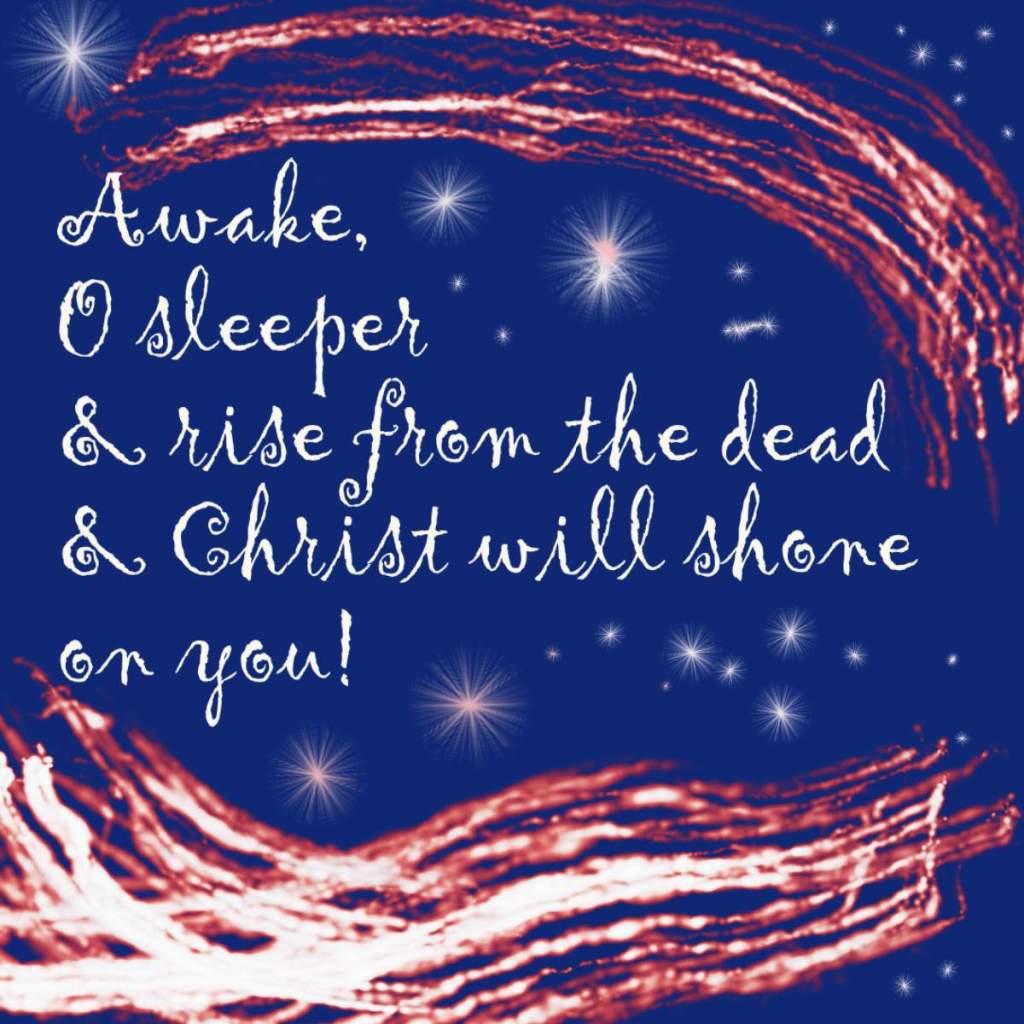 Awake,
O sleeper
& rise from the dead
& Christ will shone
on you!